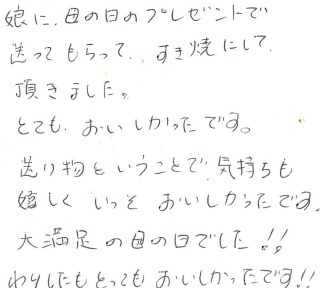 娘に、母の日のプレゼントで
送ってもらって、すき焼にして
頂きました。
とても、おいしかったです。
送り物ということで、気持ちも
嬉しく いっそ おいしかったです。
大満足の母の日でした!!
わりしたもとってもおいしかったです!!